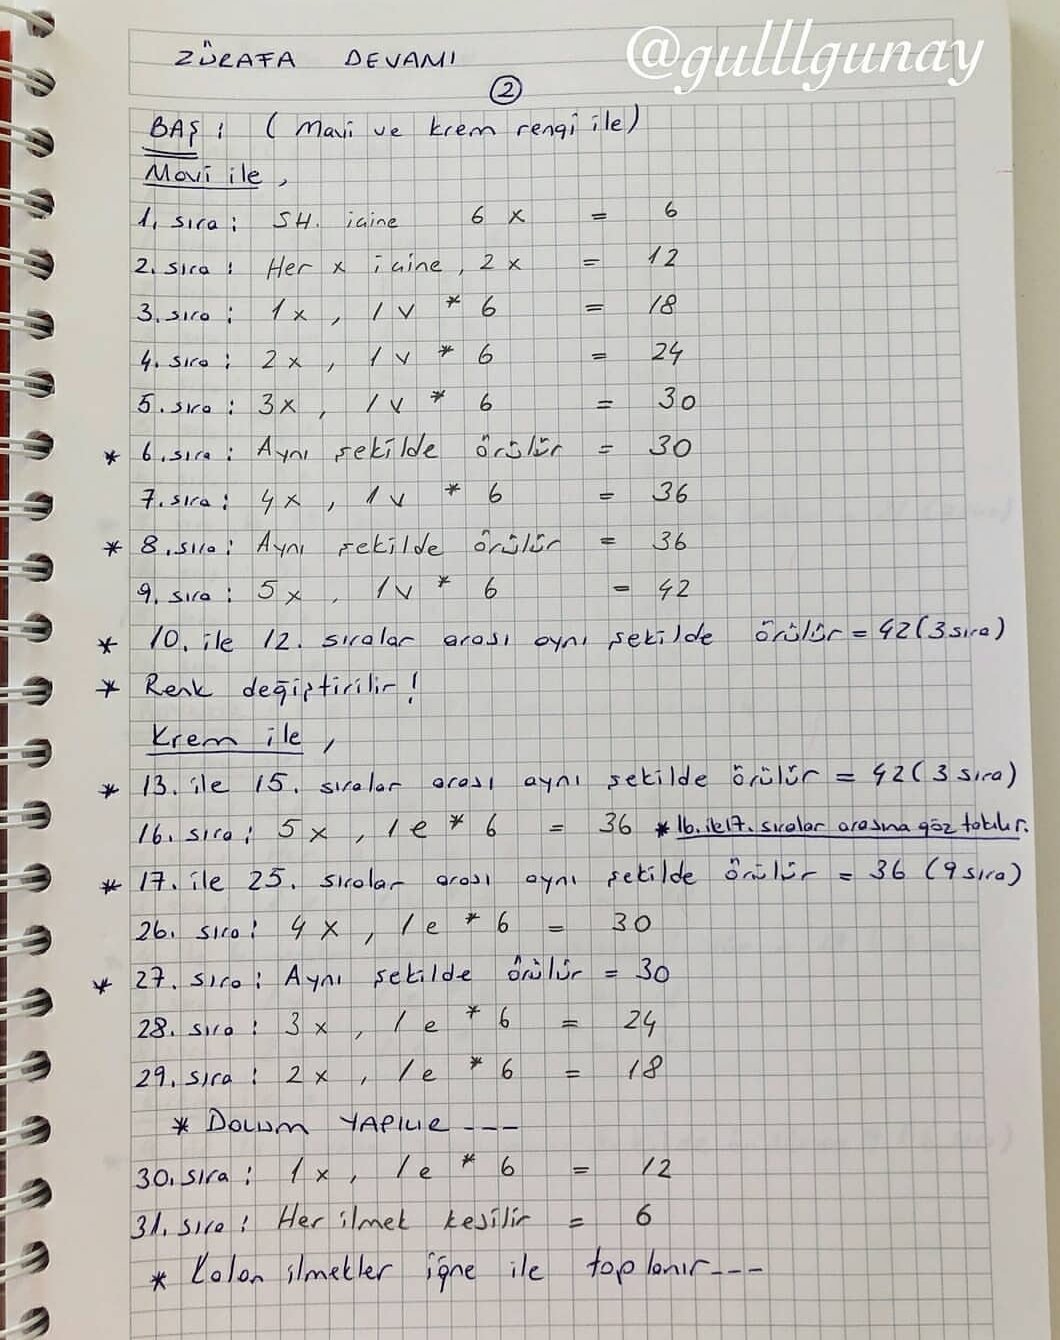 @gulllgunay
ZÜRAFA DEVAMI
2
BAŞ : ( Mavi ve krem rengi ile)
Mavi ile ,
1. sıra : SH. içine 6 x = 6
2. sıra : Her x içine , 2 x = 12
3. sıra : 1 x , 1 v * 6 = 18
4. sıra : 2 x , 1 v * 6 = 24
5. sıra : 3 x , 1 v * 6 = 30
* 6. sıra : Aynı şekilde örülür = 30
7. sıra : 4 x , 1 v * 6 = 36
* 8. sıra : Aynı şekilde örülür = 36
9. sıra : 5 x , 1 v * 6 = 42
* 10. ile 12. sıralar arası aynı şekilde örülür = 42 (3 sıra)
* Renk değiştirilir !
Krem ile ,
* 13. ile 15. sıralar arası aynı şekilde örülür = 42 ( 3 sıra)
16. sıra : 5 x , 1 e * 6 = 36 * 16. ile 17. sıralar arasına göz takılır.
* 17. ile 25. sıralar arası aynı şekilde örülür = 36 (9 sıra)
26. sıra : 4 x , 1 e * 6 = 30
* 27. sıra : Aynı şekilde örülür = 30
28. sıra : 3 x , 1 e * 6 = 24
29. sıra : 2 x , 1 e * 6 = 18
* DOLUM YAPILIR ---
30. sıra : 1 x , 1 e * 6 = 12
31. sıra : Her ilmek kesilir = 6
* Kalan ilmekler iğne ile toplanır ---